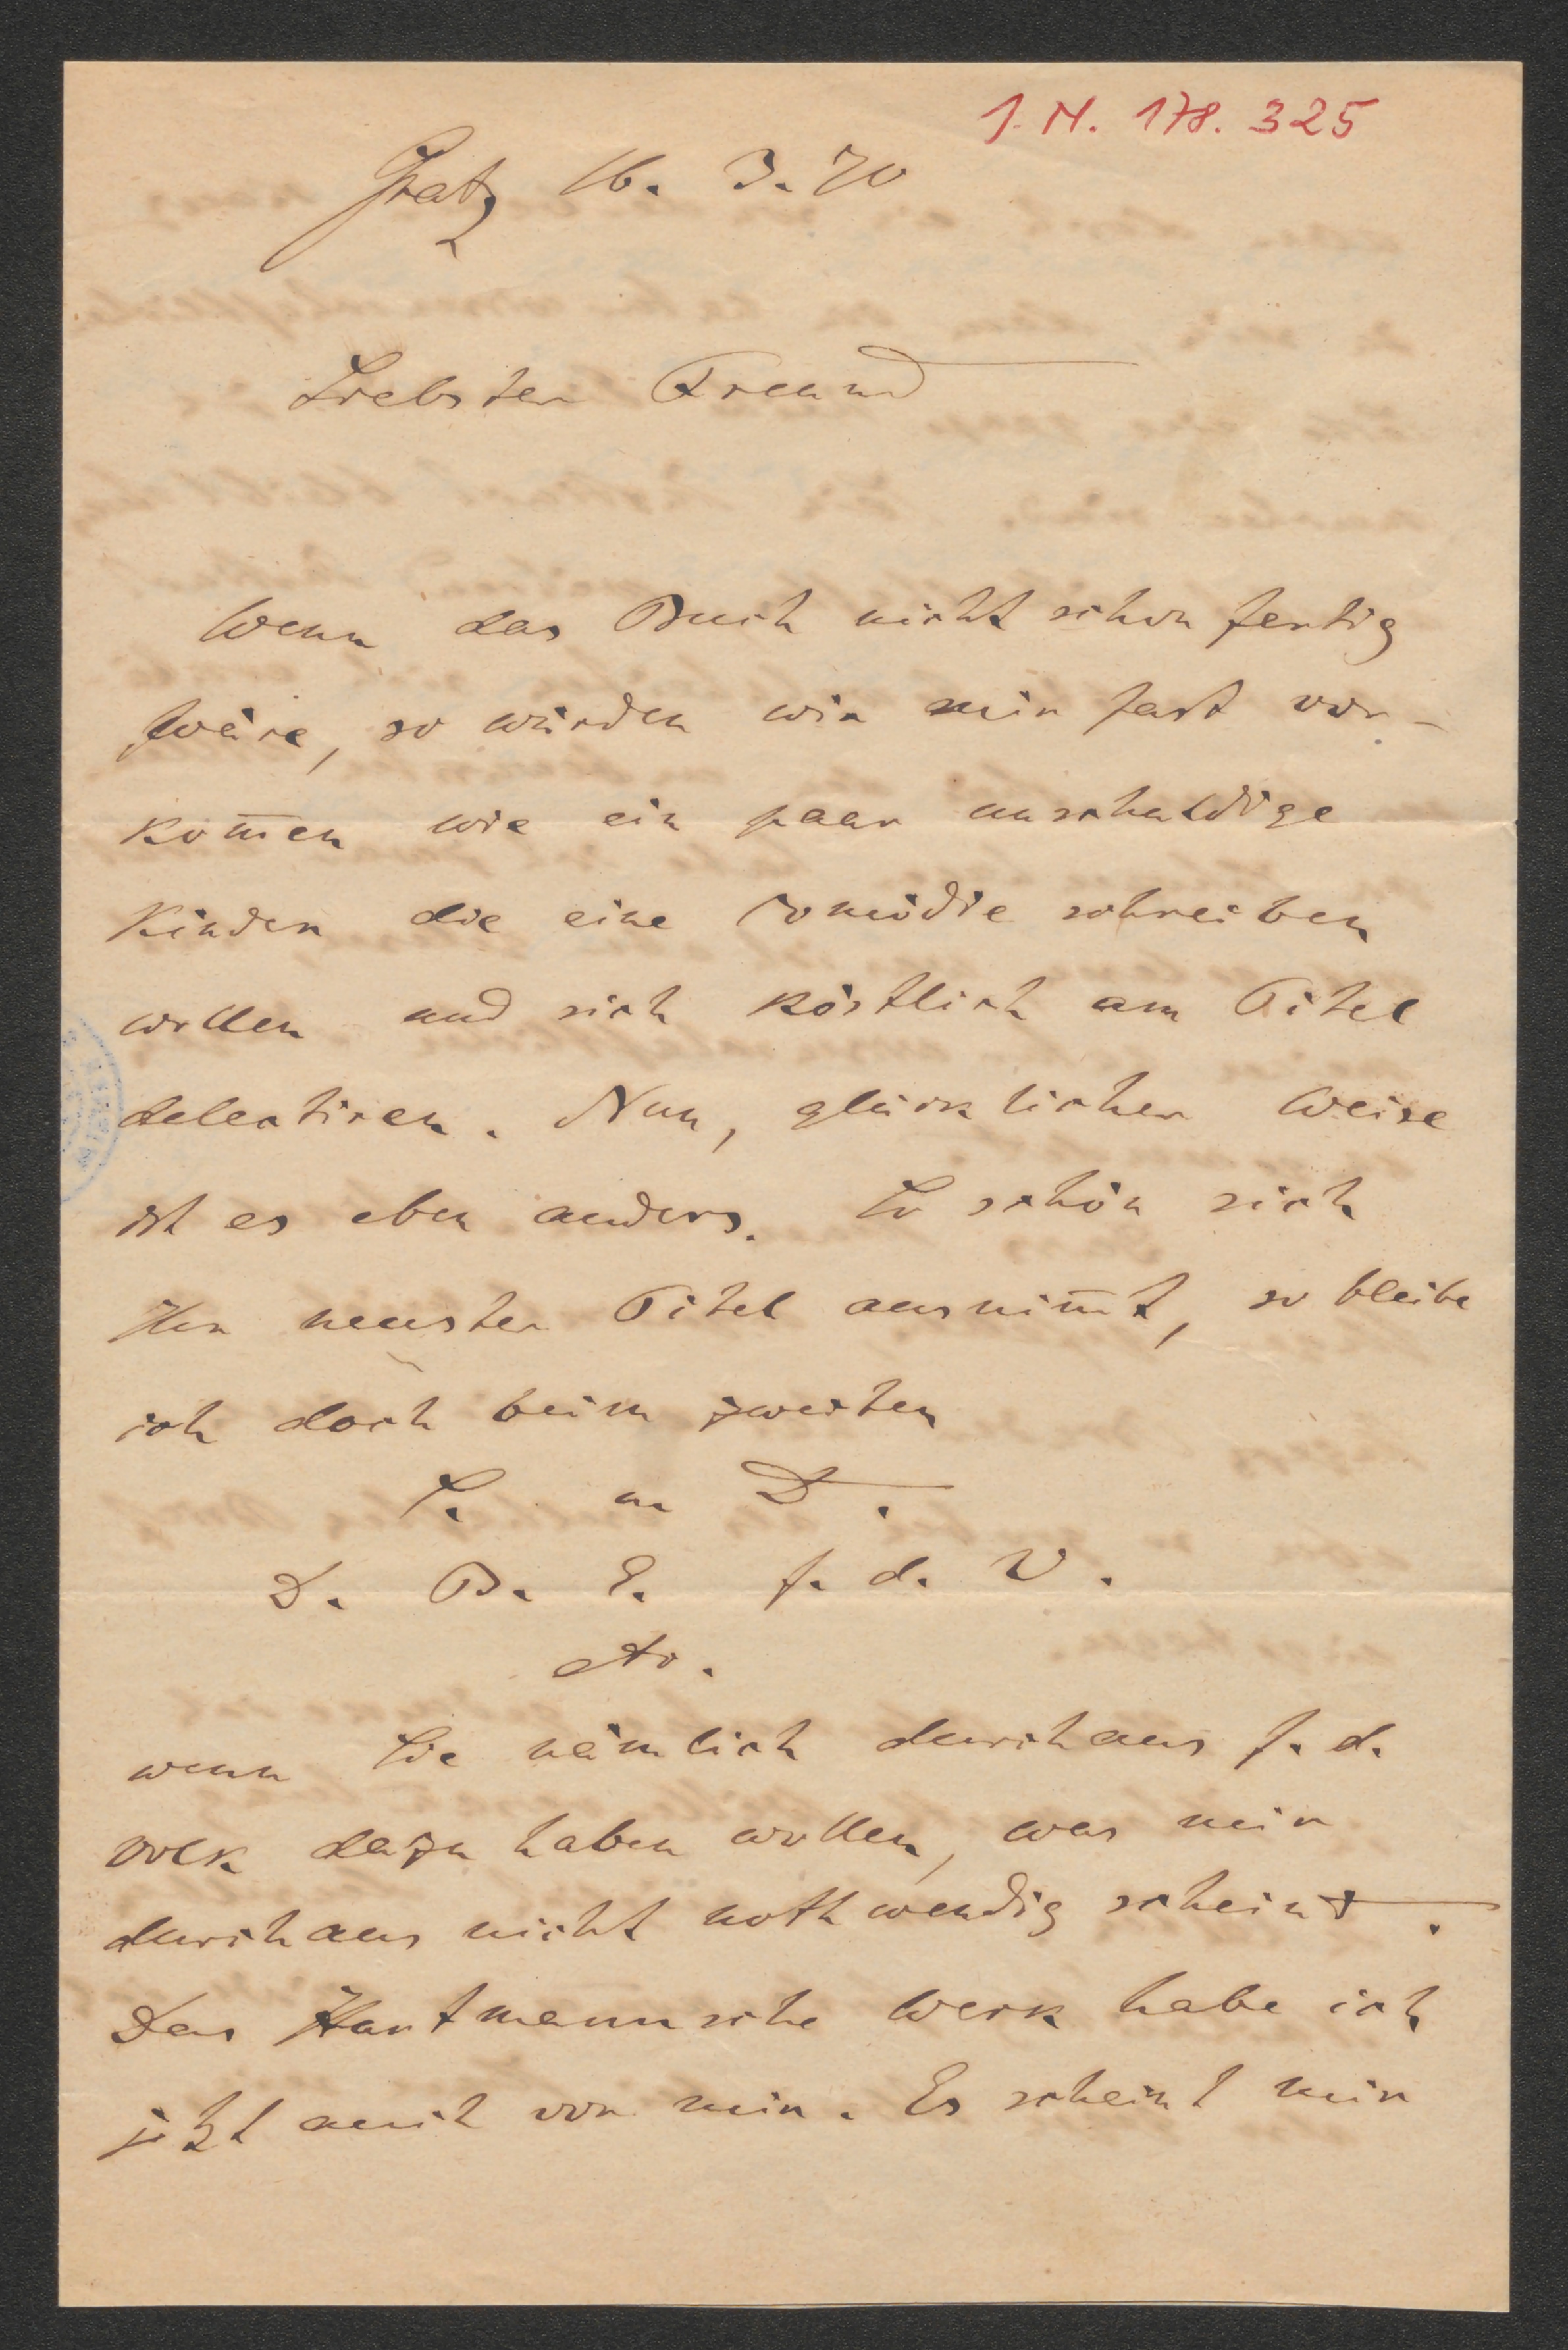 I. N. 178. 325
Gratz 16. 3. 70
Liebster Freund
Wenn das Buch nicht schon fertig
wäre, so würden wir mir fast vor-
kom̄en wie ein paar unschuldige
Kinder die eine Comödie schreiben
wollen und sich köstlich am Titel
delectiren. Nun, glücklicher Weise
ist es eben anders. So schön sich
Ihr neuster Titel ausnim̄t, so bleibe
ich doch beim zweiten
S. u D.
D. B. E. f. d. V.
etc.
wenn Sie nämlich durchaus f. d.
Volk dazu haben wollen, was mir
durchaus nicht nothwendig scheint.
Das Hartmannsche Werk habe ich
jetzt auch vor mir. Es scheint mir